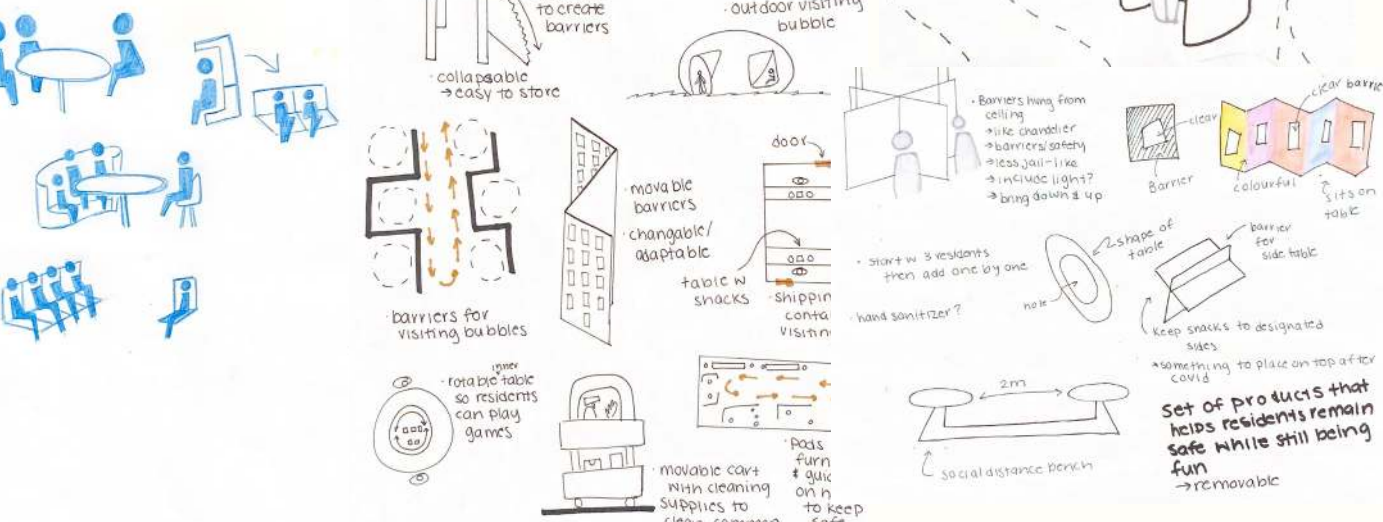 to create
barriers
· collapsable
→ easy to store
· outdoor visiting
bubble
· barriers for
visiting bubbles
· movable
barriers
· changable/
adaptable
door
table w
snacks
· shippin
conta
visitin
inner
· rotable table
so residents
can play
games
· movable cart
with cleaning
supplies to
clean common
· pods
furn
& guid
on h
to keep
safe
· Barriers hung from
ceiling
→ like chandelier
→ barriers/safety
→ less jail-like
→ include light?
→ bring down & up
clear
Barrier
clear barrie
colourful
sits on
table
· start w 3 residents
then add one by one
· hand sanitizer?
shape of
table
hole
barrier
for
side table
Keep snacks to designated
sides
*something to place on top after
covid
2m
social distance bench
Set of products that
helps residents remain
safe while still being
fun
→ removable